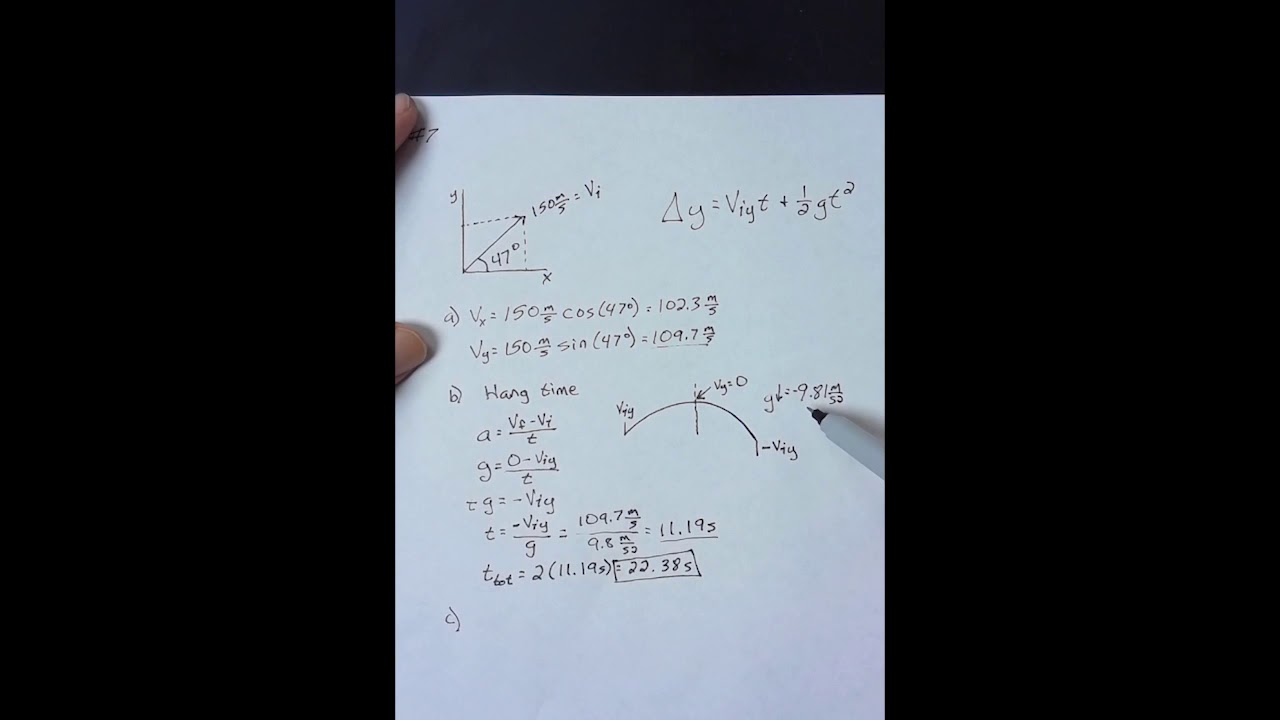 #7
y
150 m/s = Vi
47°
x
Δy = Viy t + 1/2 gt²
a) Vx = 150 m/s cos(47°) = 102.3 m/s
Vy = 150 m/s sin(47°) = 109.7 m/s
b) Hang time
Vy = 0
g↓ = -9.81 m/s²
Viy
-Viy
a = (Vf - Vi)/t
g = (0 - Viy)/t
t g = -Viy
t = -Viy/g = (109.7 m/s)/(9.8 m/s²) = 11.19s
t tot = 2(11.19s) = 22.38s
c)